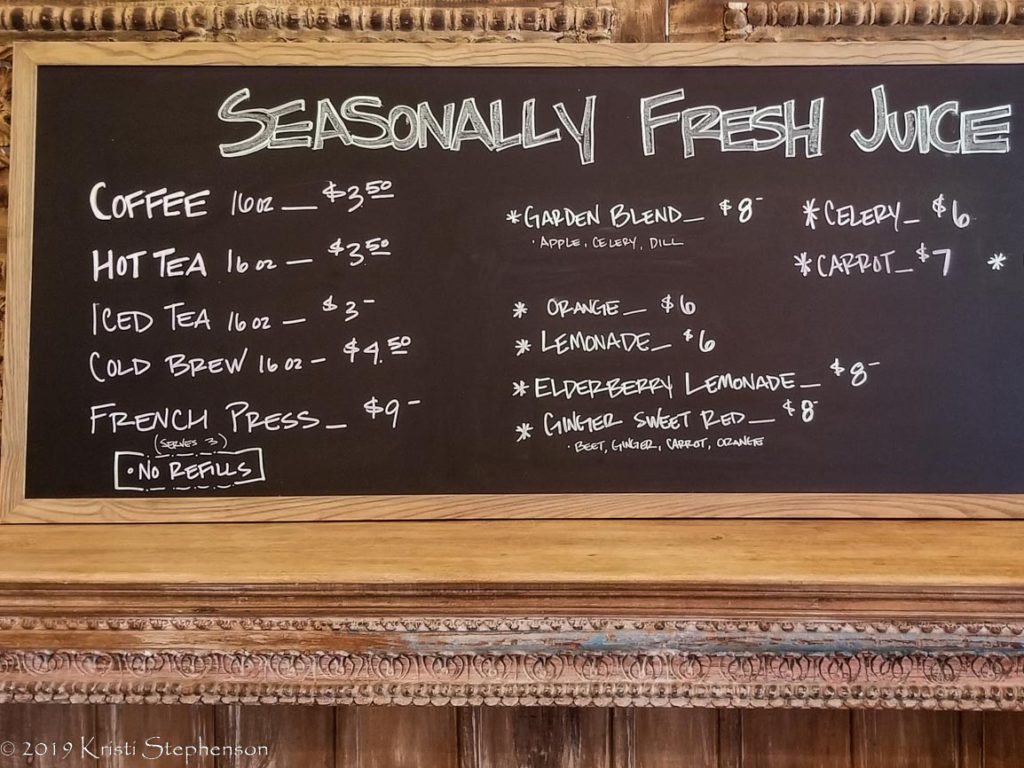 SEASONALLY FRESH JUICE
COFFEE 16 oz _ $3.50
HOT TEA 16 oz _ $3.50
ICED TEA 16 oz _ $3-
COLD BREW 16 oz - $4.50
FRENCH PRESS _ $9-
(SERVES 3)
• NO REFILLS
*GARDEN BLEND _ $8-
• APPLE, CELERY, DILL
* ORANGE _ $6
* LEMONADE _ $6
* ELDERBERRY LEMONADE _ $8-
* GINGER SWEET RED _ $8-
• BEET, GINGER, CARROT, ORANGE
*CELERY _ $6
*CARROT _ $7 *
© 2019 Kristi Stephenson